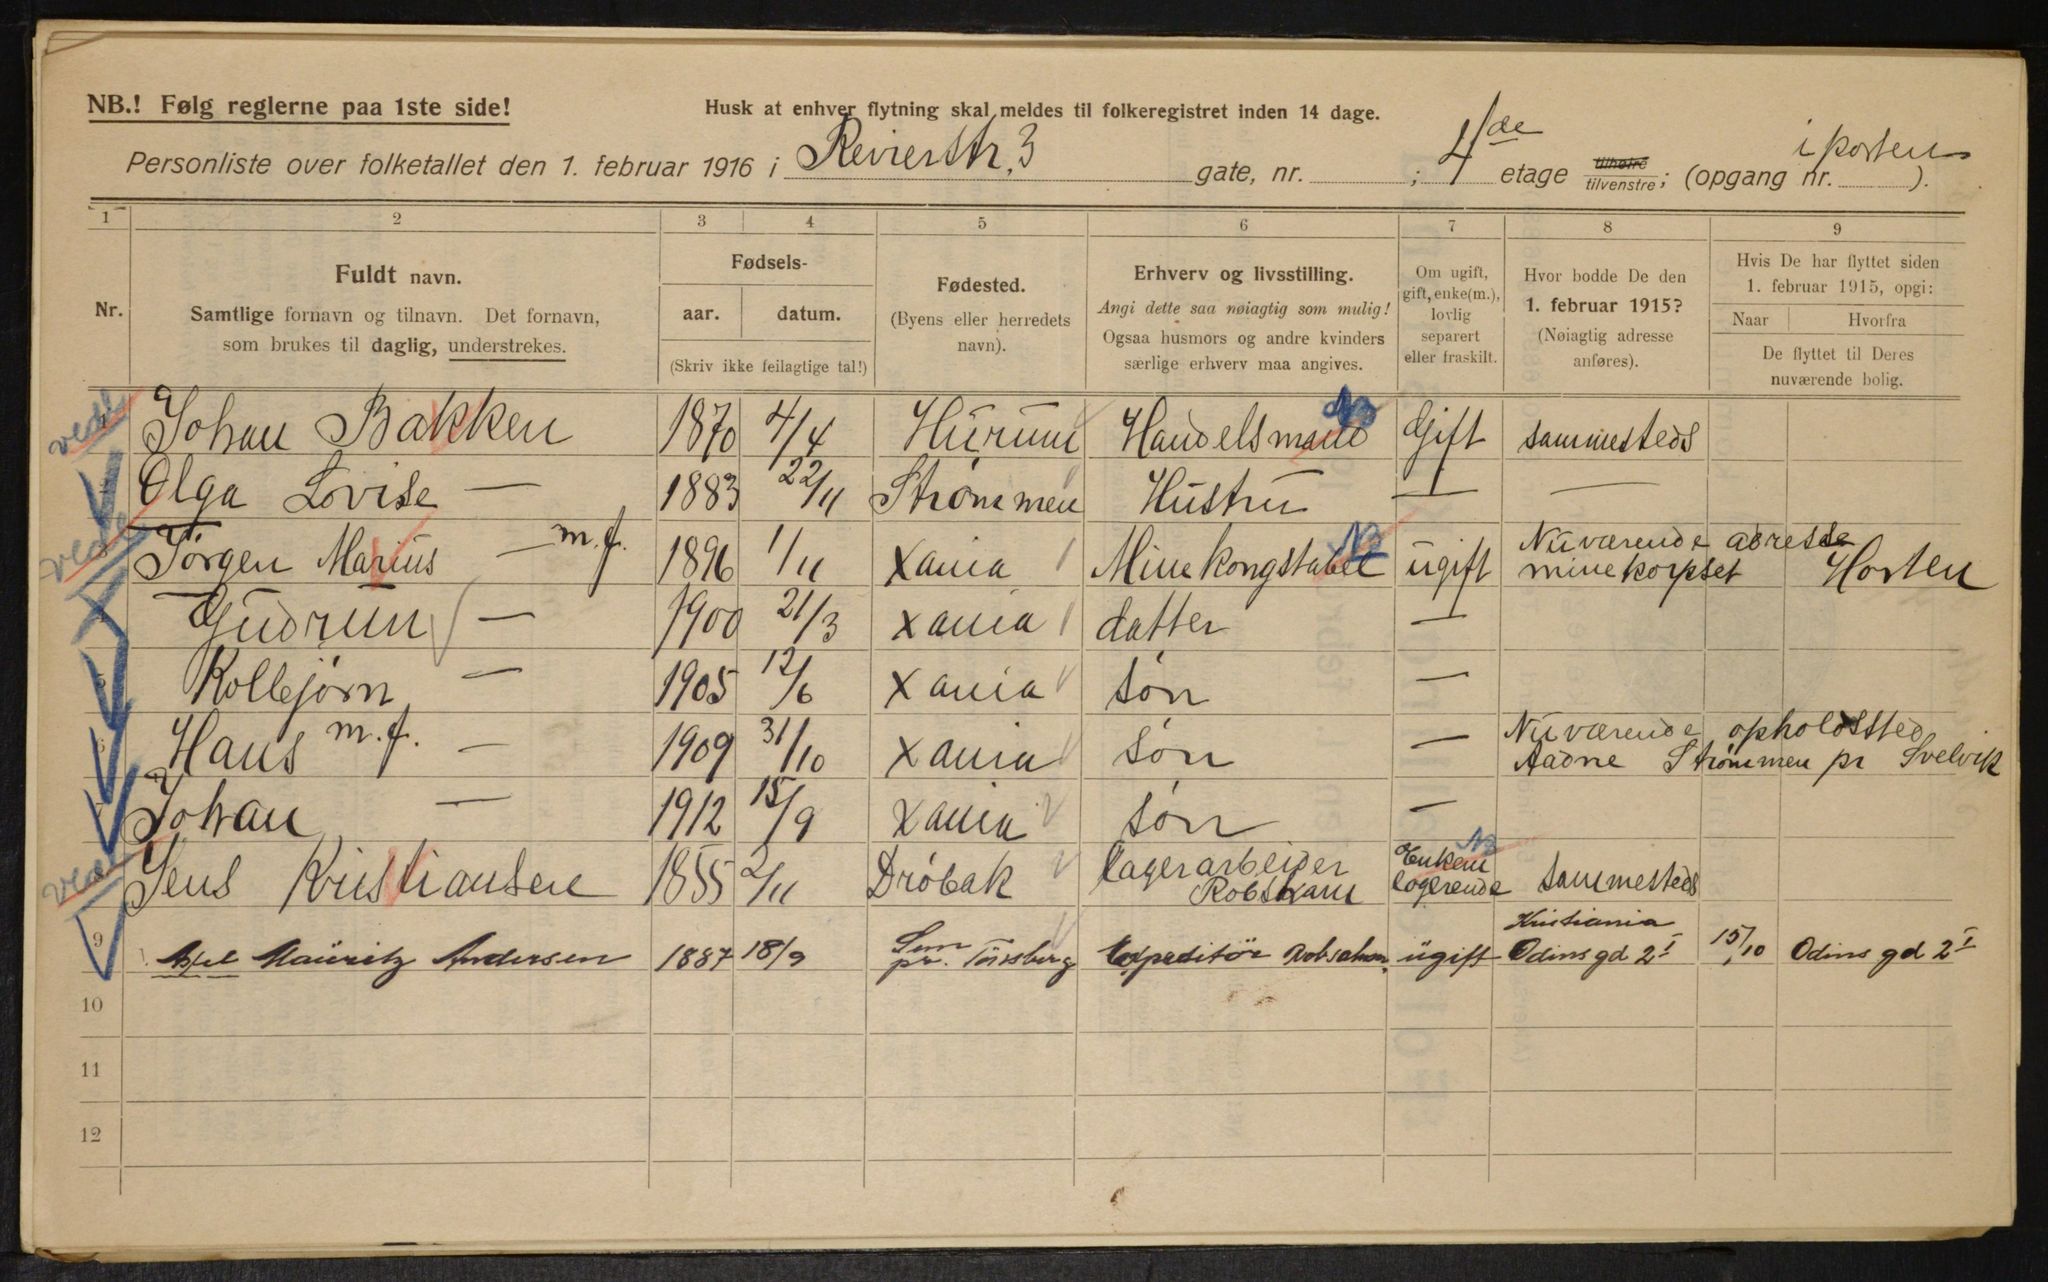 NB.! Følg reglerne paa 1ste side!
Husk at enhver flytning skal meldes til folkeregistret inden 14 dage.
Personliste over folketallet den 1. februar 1916 i Revierstr. 3 gate, nr. ; 4de etage tilhøire tilvenstre; (opgang nr. i porten ).
1 2 3 4 5 6 7 8 9
Nr.
Fuldt navn.
Samtlige fornavn og tilnavn. Det fornavn,
som brukes til daglig, understrekes.
Fødsels-
aar. datum.
(Skriv ikke feilagtige tal!)
Fødested.
(Byens eller herredets
navn).
Erhverv og livsstilling.
Angi dette saa nøiagtig som mulig!
Ogsaa husmors og andre kvinders
særlige erhverv maa angives.
Om ugift,
gift, enke(m.),
lovlig
separert
eller fraskilt.
Hvor bodde De den
1. februar 1915?
(Nøiagtig adresse
anføres).
Hvis De har flyttet siden
1. februar 1915, opgi:
Naar Hvorfra
De flyttet til Deres
nuværende bolig.
Johan Bakken 1870 4/4 Hurum Handelsmand Gift sammesteds
Olga Lovise — 1883 22/11 Strømmen Hustru — —
Jörgen Marius — m.f. 1896 1/11 Xania Minekongstabel ugift Nuværende adresse
minekorpset Horten
Gudrun — 1900 21/3 Xania datter —
Kolbjørn — 1905 12/6 Xania søn —
Hans m.f. — 1909 31/10 Xania søn — Nuværende opholdssted
Aadne Strømmen pr Svelvik
Johan — 1912 15/9 Xania søn —
Jens Kristiansen 1855 2/11 Dröbak lagerarbeider
Robsham Enkem
logerende sammesteds
9 Axel Mauritz Andersen 1887 18/9 Sem
pr. Tønsberg Expeditör Robsahm ugift Kristiania
Odins gd 2 I 15/10 Odins gd 2 I
10
11
12